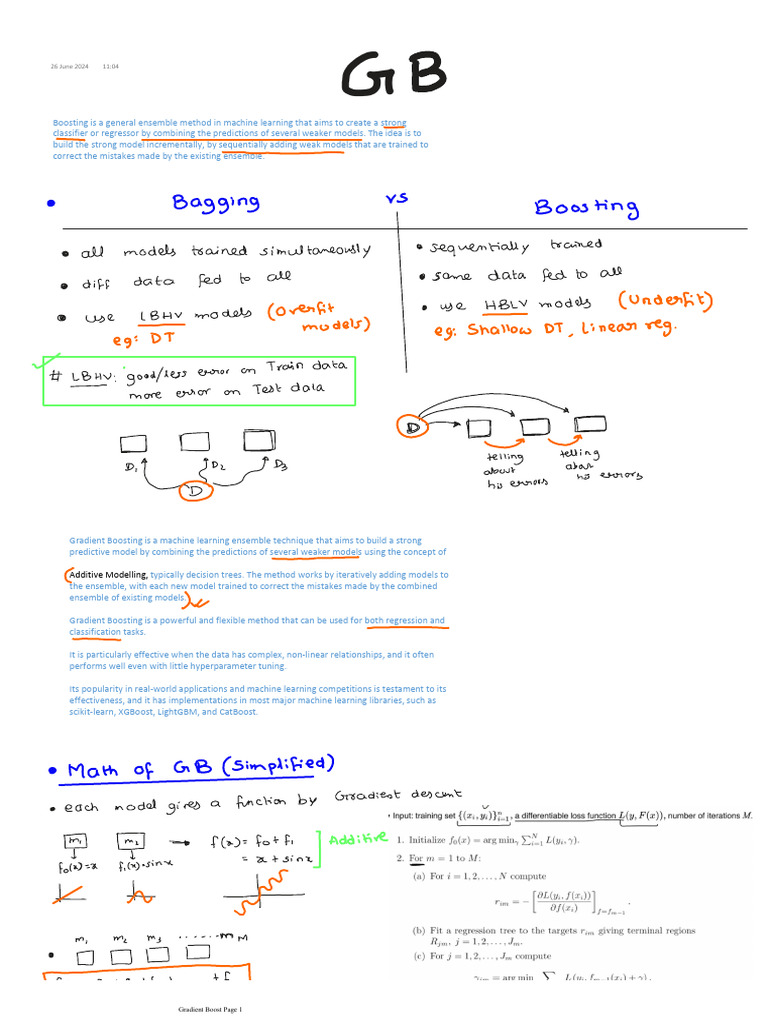 26 June 2024 11:04
GB
Boosting is a general ensemble method in machine learning that aims to create a strong
classifier or regressor by combining the predictions of several weaker models. The idea is to
build the strong model incrementally, by sequentially adding weak models that are trained to
correct the mistakes made by the existing ensemble.
• Bagging vs Boosting
• all models trained simultaneously
• diff data fed to all
• use LBHV models (Overfit
models)
eg: DT
# LBHV: good/less error on Train data
more error on Test data
D1 D2 D3
D
• sequentially trained
• same data fed to all
• use HBLV models (Underfit)
eg: Shallow DT, Linear reg.
D
telling
about
his errors
telling
about
his errors
Gradient Boosting is a machine learning ensemble technique that aims to build a strong
predictive model by combining the predictions of several weaker models using the concept of
Additive Modelling, typically decision trees. The method works by iteratively adding models to
the ensemble, with each new model trained to correct the mistakes made by the combined
ensemble of existing models.
Gradient Boosting is a powerful and flexible method that can be used for both regression and
classification tasks.
It is particularly effective when the data has complex, non-linear relationships, and it often
performs well even with little hyperparameter tuning.
Its popularity in real-world applications and machine learning competitions is testament to its
effectiveness, and it has implementations in most major machine learning libraries, such as
scikit-learn, XGBoost, LightGBM, and CatBoost.
• Math of GB (Simplified)
• each model gives a function by Gradient descent
m1 m2 → f(x) = f0 + f1
= x + sinx
Additive
f0(x)=x f1(x)=sinx
m1 m2 m3 ...... mM
• Input: training set {(xi, yi)}ⁿi=1, a differentiable loss function L(y, F(x)), number of iterations M.
1. Initialize f0(x) = arg minγ ∑ᴺi=1 L(yi, γ).
2. For m = 1 to M:
(a) For i = 1, 2, . . . , N compute
rim = − [∂L(yi, f(xi)) / ∂f(xi)] f=fm−1 .
(b) Fit a regression tree to the targets rim giving terminal regions
Rjm, j = 1, 2, . . . , Jm.
(c) For j = 1, 2, . . . , Jm compute
γjm = arg min ∑ L(yi, fm−1(xi) + γ) .
Gradient Boost Page 1